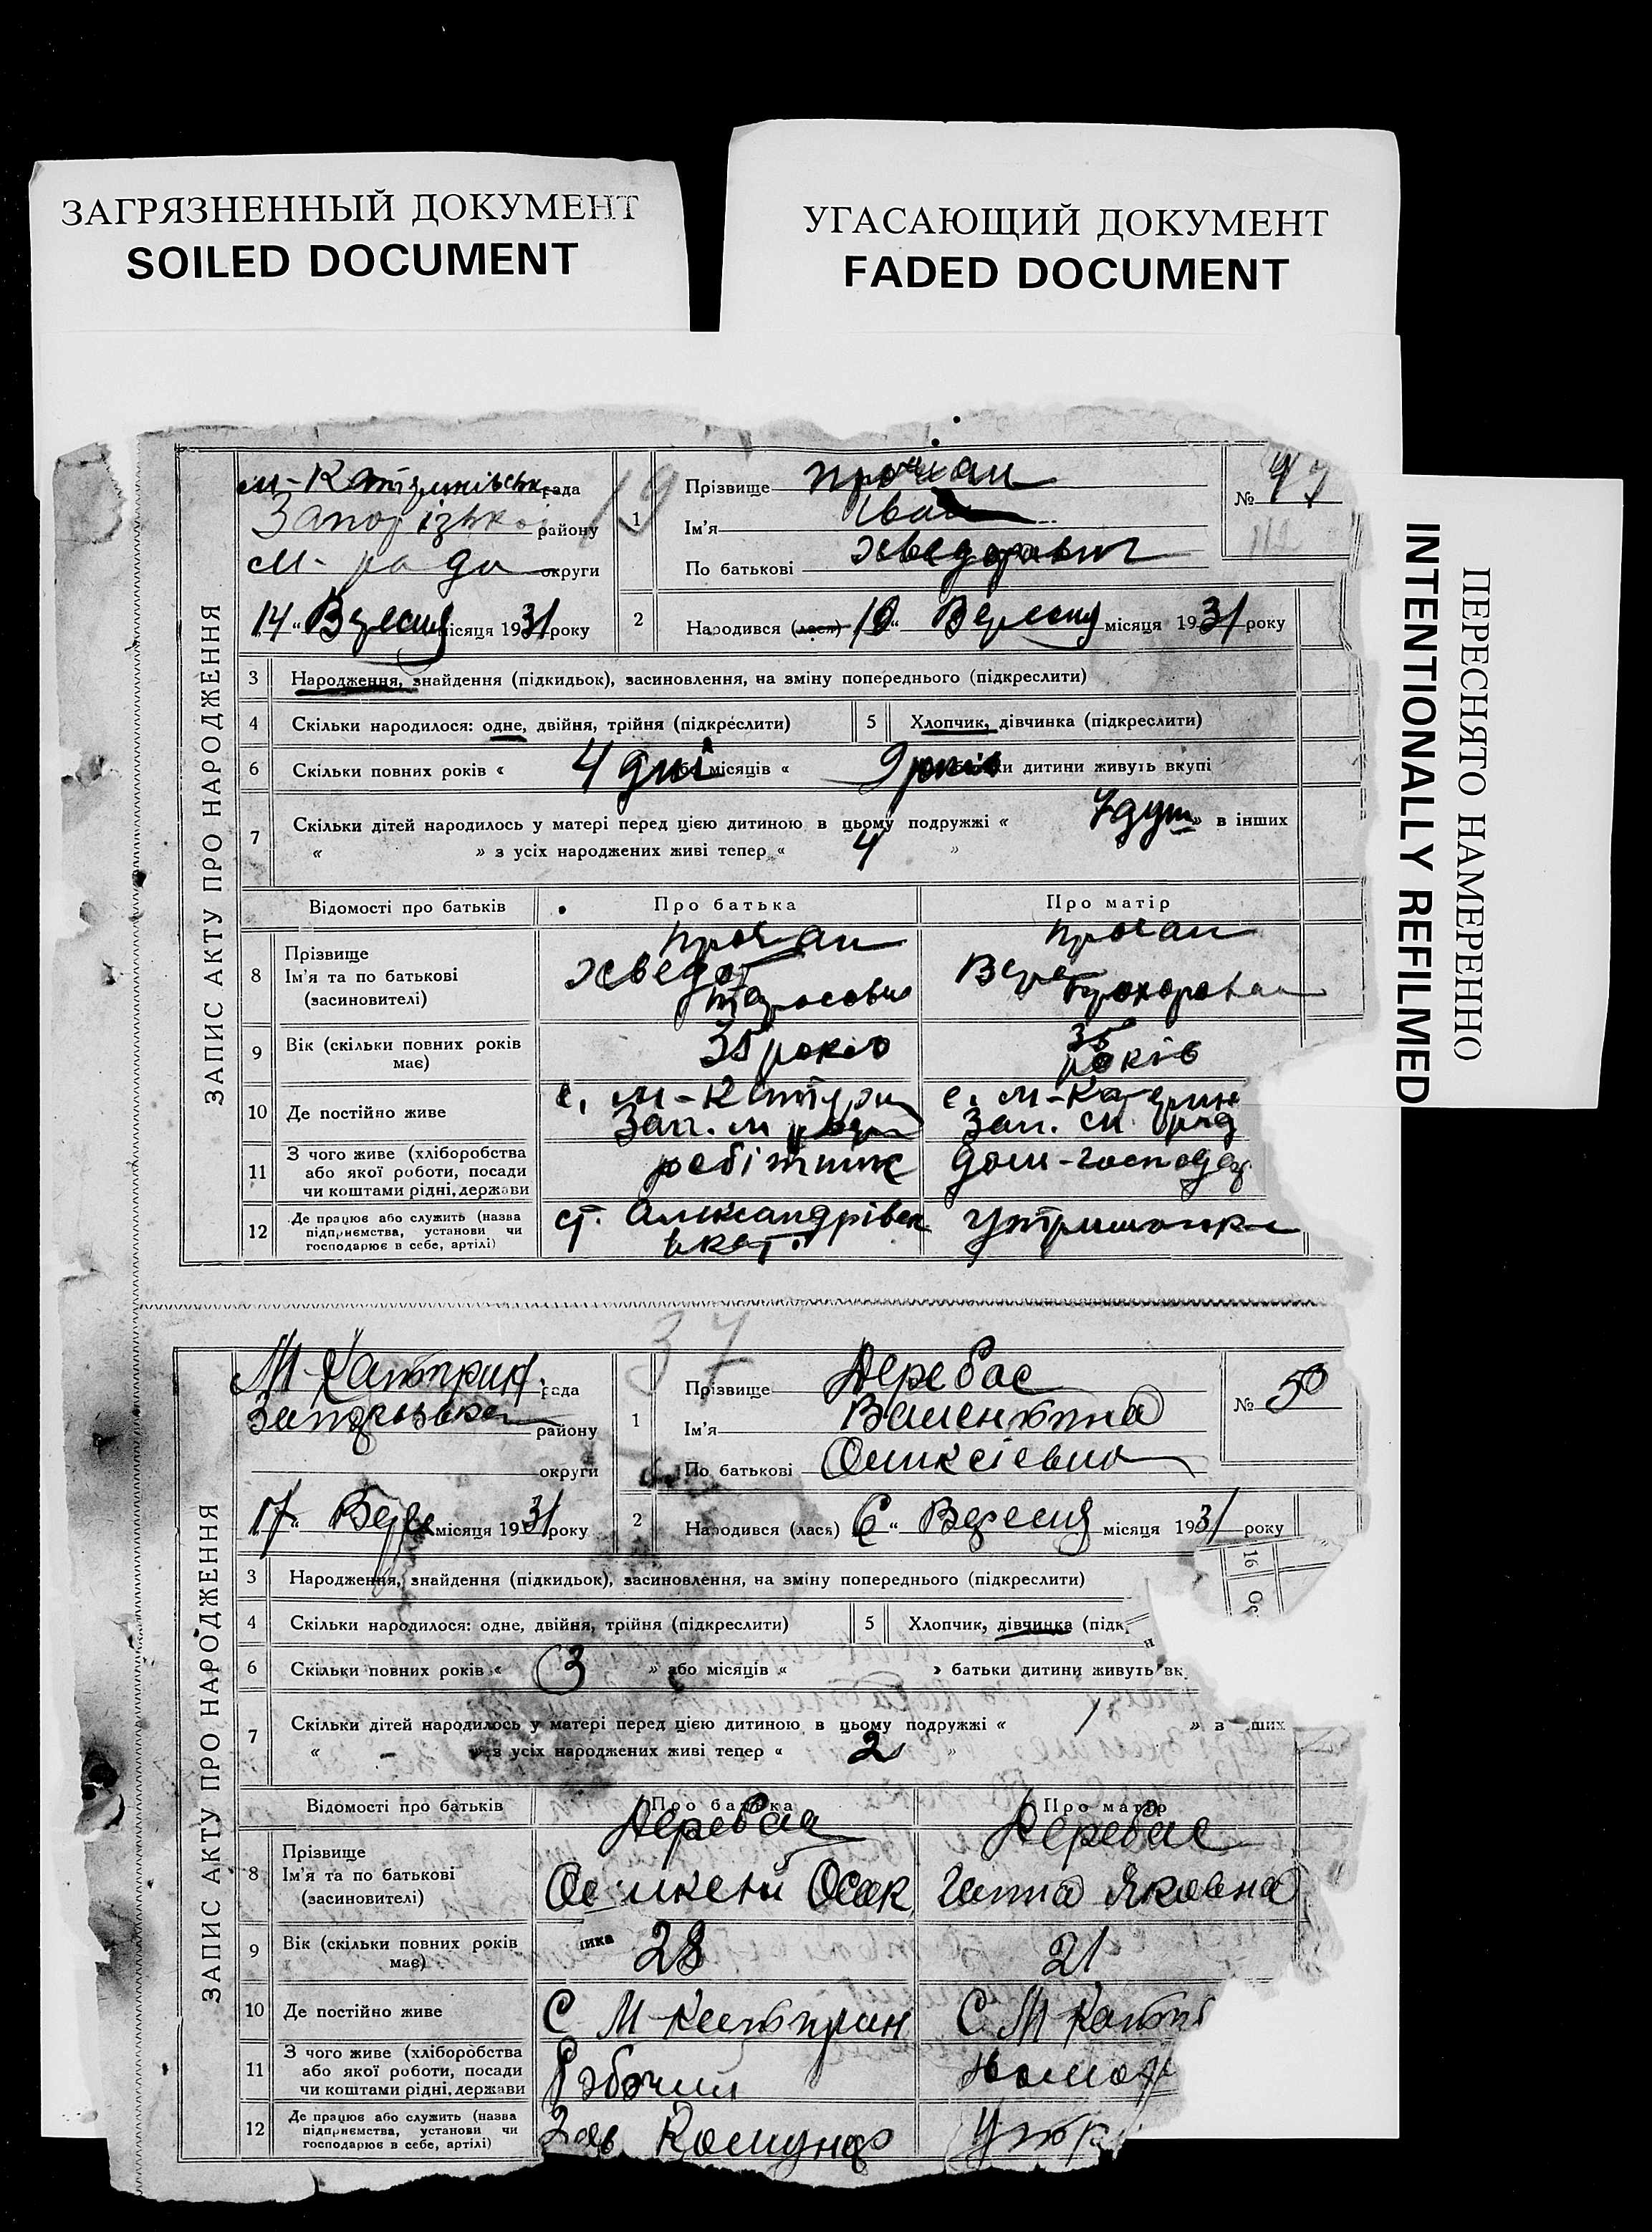 ЗАГРЯЗНЕННЫЙ ДОКУМЕНТ
SOILED DOCUMENT
УГАСАЮЩИЙ ДОКУМЕНТ
FADED DOCUMENT
ПЕРЕСНЯТО НАМЕРЕННО
INTENTIONALLY REFILMED
ЗАПИС АКТУ ПРО НАРОДЖЕННЯ
рада
району
м- рада округи
14 " Вересня місяця 1931 року
19
1
Прізвище Прочан
Ім'я Іван
По батькові Хведорович
№
112
2
Народився (лася) 10 " Вересня місяця 1931 року
3 Народження, знайдення (підкидьок), засиновлення, на зміну попереднього (підкреслити)
4 Скільки народилося: одне, двійня, трійня (підкреслити)
5 Хлопчик, дівчинка (підкреслити)
6 Скільки повних років « 4 дні місяців « 9 років дитини живуть вкупі
7 Скільки дітей народилось у матері перед цією дитиною в цьому подружжі « 7 душ » в інших
« » з усіх народжених живі тепер « 4 »
Відомості про батьків
Про батька
Про матір
8 Прізвище
Ім'я та по батькові
(засиновителі)
Прочан
Хведот
Тарасович
Прочан
Вера
Прохоровна
9 Вік (скільки повних років
має)
35 років
35
років
10 Де постійно живе
с. м-Катери
Зап. м
с. м-Катерин
Зап. м. рад
11 З чого живе (хліборобства
або якої роботи, посади
чи коштами рідні, держави
робітник
дом-господар
12 Де працює або служить (назва
підприємства, установи чи
господарює в себе, артілі)
ст. Александрівск
Ікат.
утриманка
ЗАПИС АКТУ ПРО НАРОДЖЕННЯ
М Катерин. рада
району
округи
17 " Верес місяця 1931 року
37
1
Прізвище Деребас
Ім'я Валентина
По батькові Оликсієвна
№ 50
2
Народився (лася) 6 " Вересня місяця 1931 року
16
Ос
3 Народження, знайдення (підкидьок), засиновлення, на зміну попереднього (підкреслити)
4 Скільки народилося: одне, двійня, трійня (підкреслити)
5 Хлопчик, дівчинка (підк
6 Скільки повних років « 3 » або місяців « » батьки дитини живуть вк
7 Скільки дітей народилось у матері перед цією дитиною в цьому подружжі « 1 » в ших
« - » з усіх народжених живі тепер « 2 »
Відомості про батьків
Про батька
Про матір
8 Прізвище
Ім'я та по батькові
(засиновителі)
Деребас
Деребас
Яковна
9 Вік (скільки повних років
має)
ика
28
21
10 Де постійно живе
С М-Катерин
С М Кате
11 З чого живе (хліборобства
або якої роботи, посади
чи коштами рідні, держави
Робочий
12 Де працює або служить (назва
підприємства, установи чи
господарює в себе, артілі)
Зав Комунар
Утр